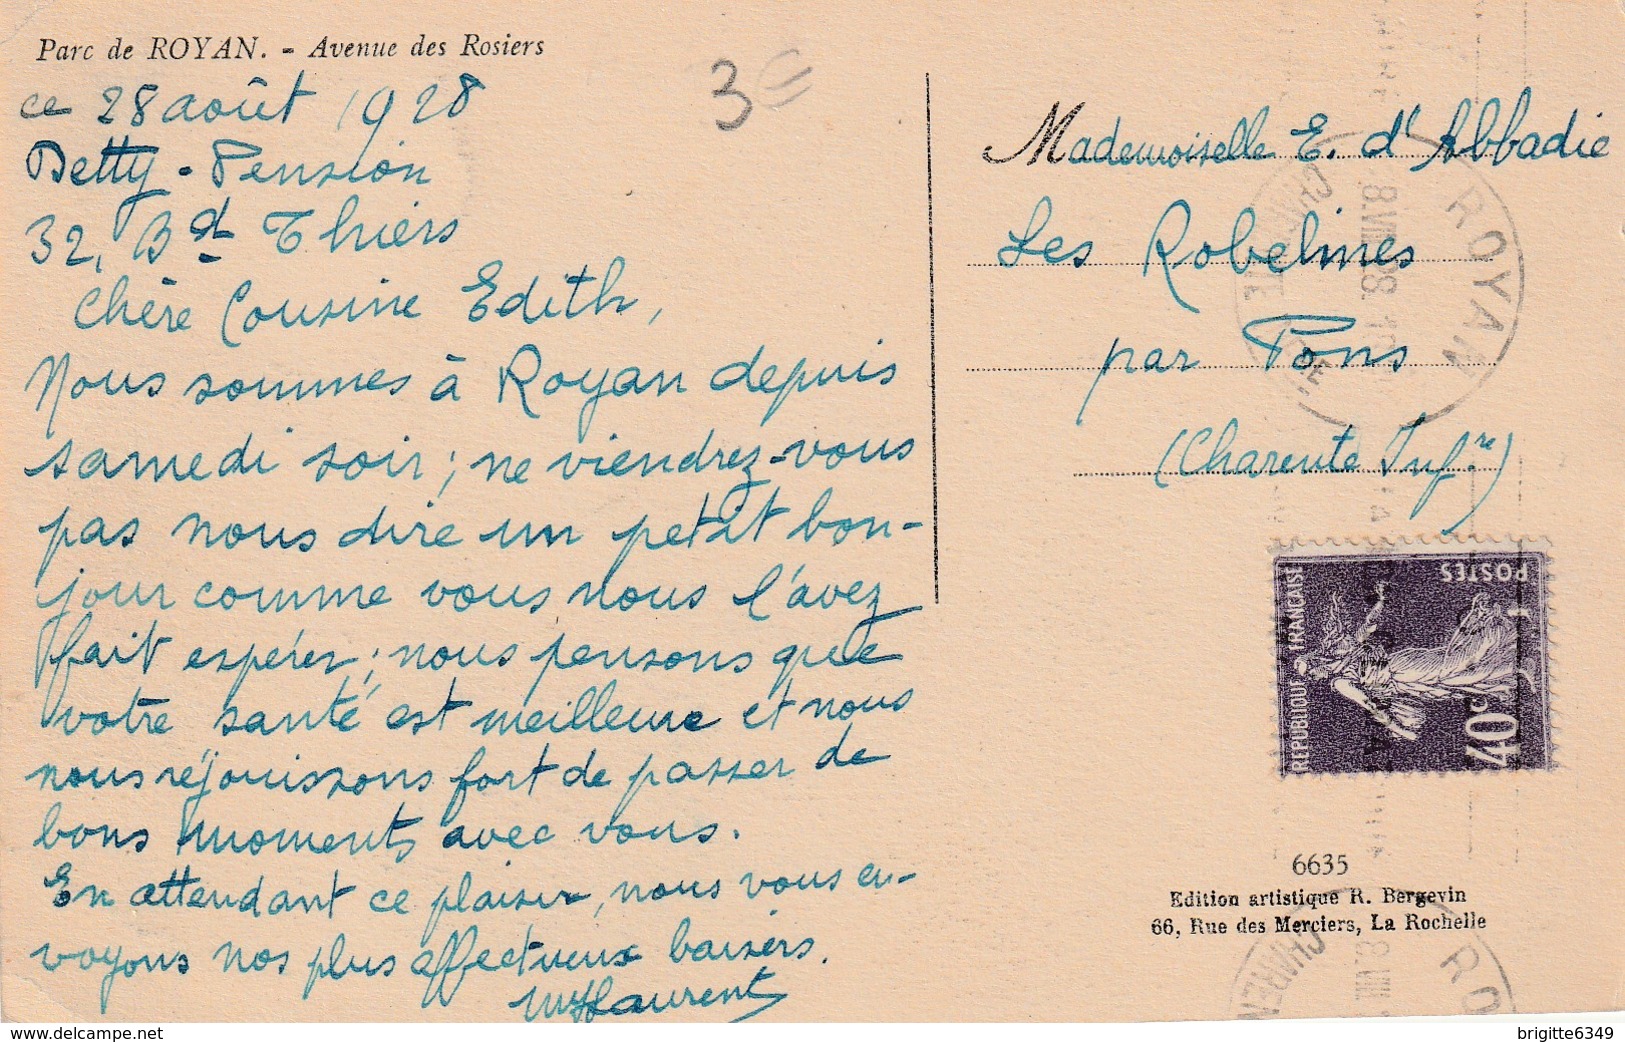 Parc de ROYAN. - Avenue des Rosiers
3
ce 28 août 1928
Betty-Pension
32, Bd Thiers
Chère Cousine Edith,
Nous sommes à Royan depuis
samedi soir; ne viendrez-vous
pas nous dire un petit bon-
jour comme vous nous l'avez
fait espérer; nous pensons que
votre santé est meilleure et nous
nous réjouissons fort de passer de
bons moments avec vous.
En attendant ce plaisir, nous vous en-
voyons nos plus affectueux baisers.
Laurent
Mademoiselle E. d'Abbadie
Les Robelines
par Pons
(Charente Infre)
ROYAN
REPUBLIQUE FRANÇAISE
POSTES
40c
6635
Edition artistique R. Bergevin
66, Rue des Merciers, La Rochelle
brigitte6349